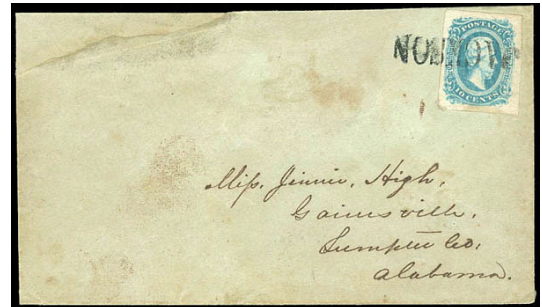 POSTAGE
10 CENTS
Miss. Jinnie, High,
Gainesville,
Sumpter Co,
Alabama.